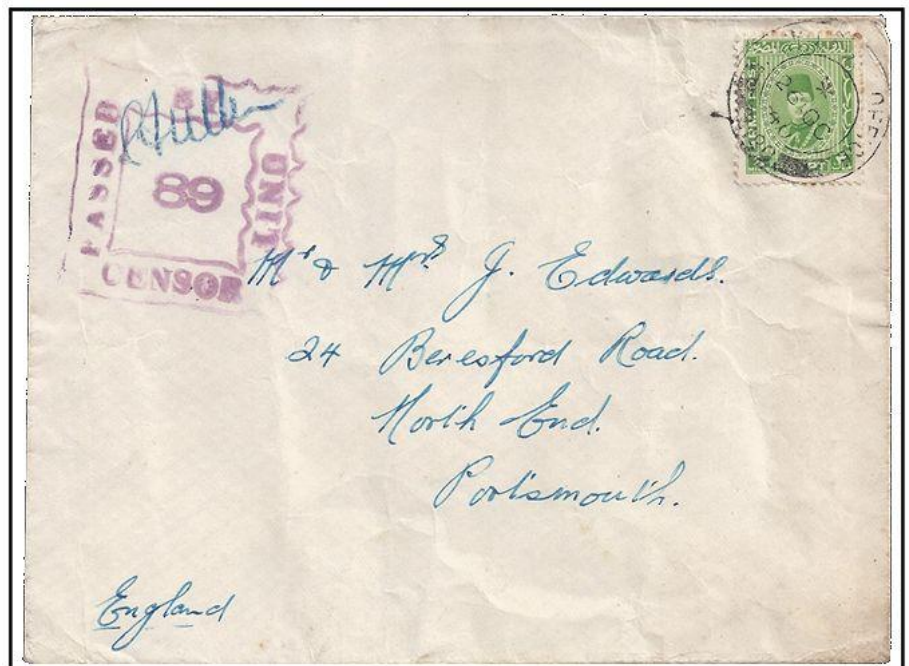 PASSED
BY
UNIT
CENSOR
89
Mr & Mrs. J. Edwards.
24 Beresford Road.
North End.
Portsmouth.
England
OFFICE